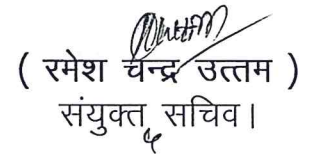 ( रमेश चन्द्र उत्तम )
संयुक्त सचिव।